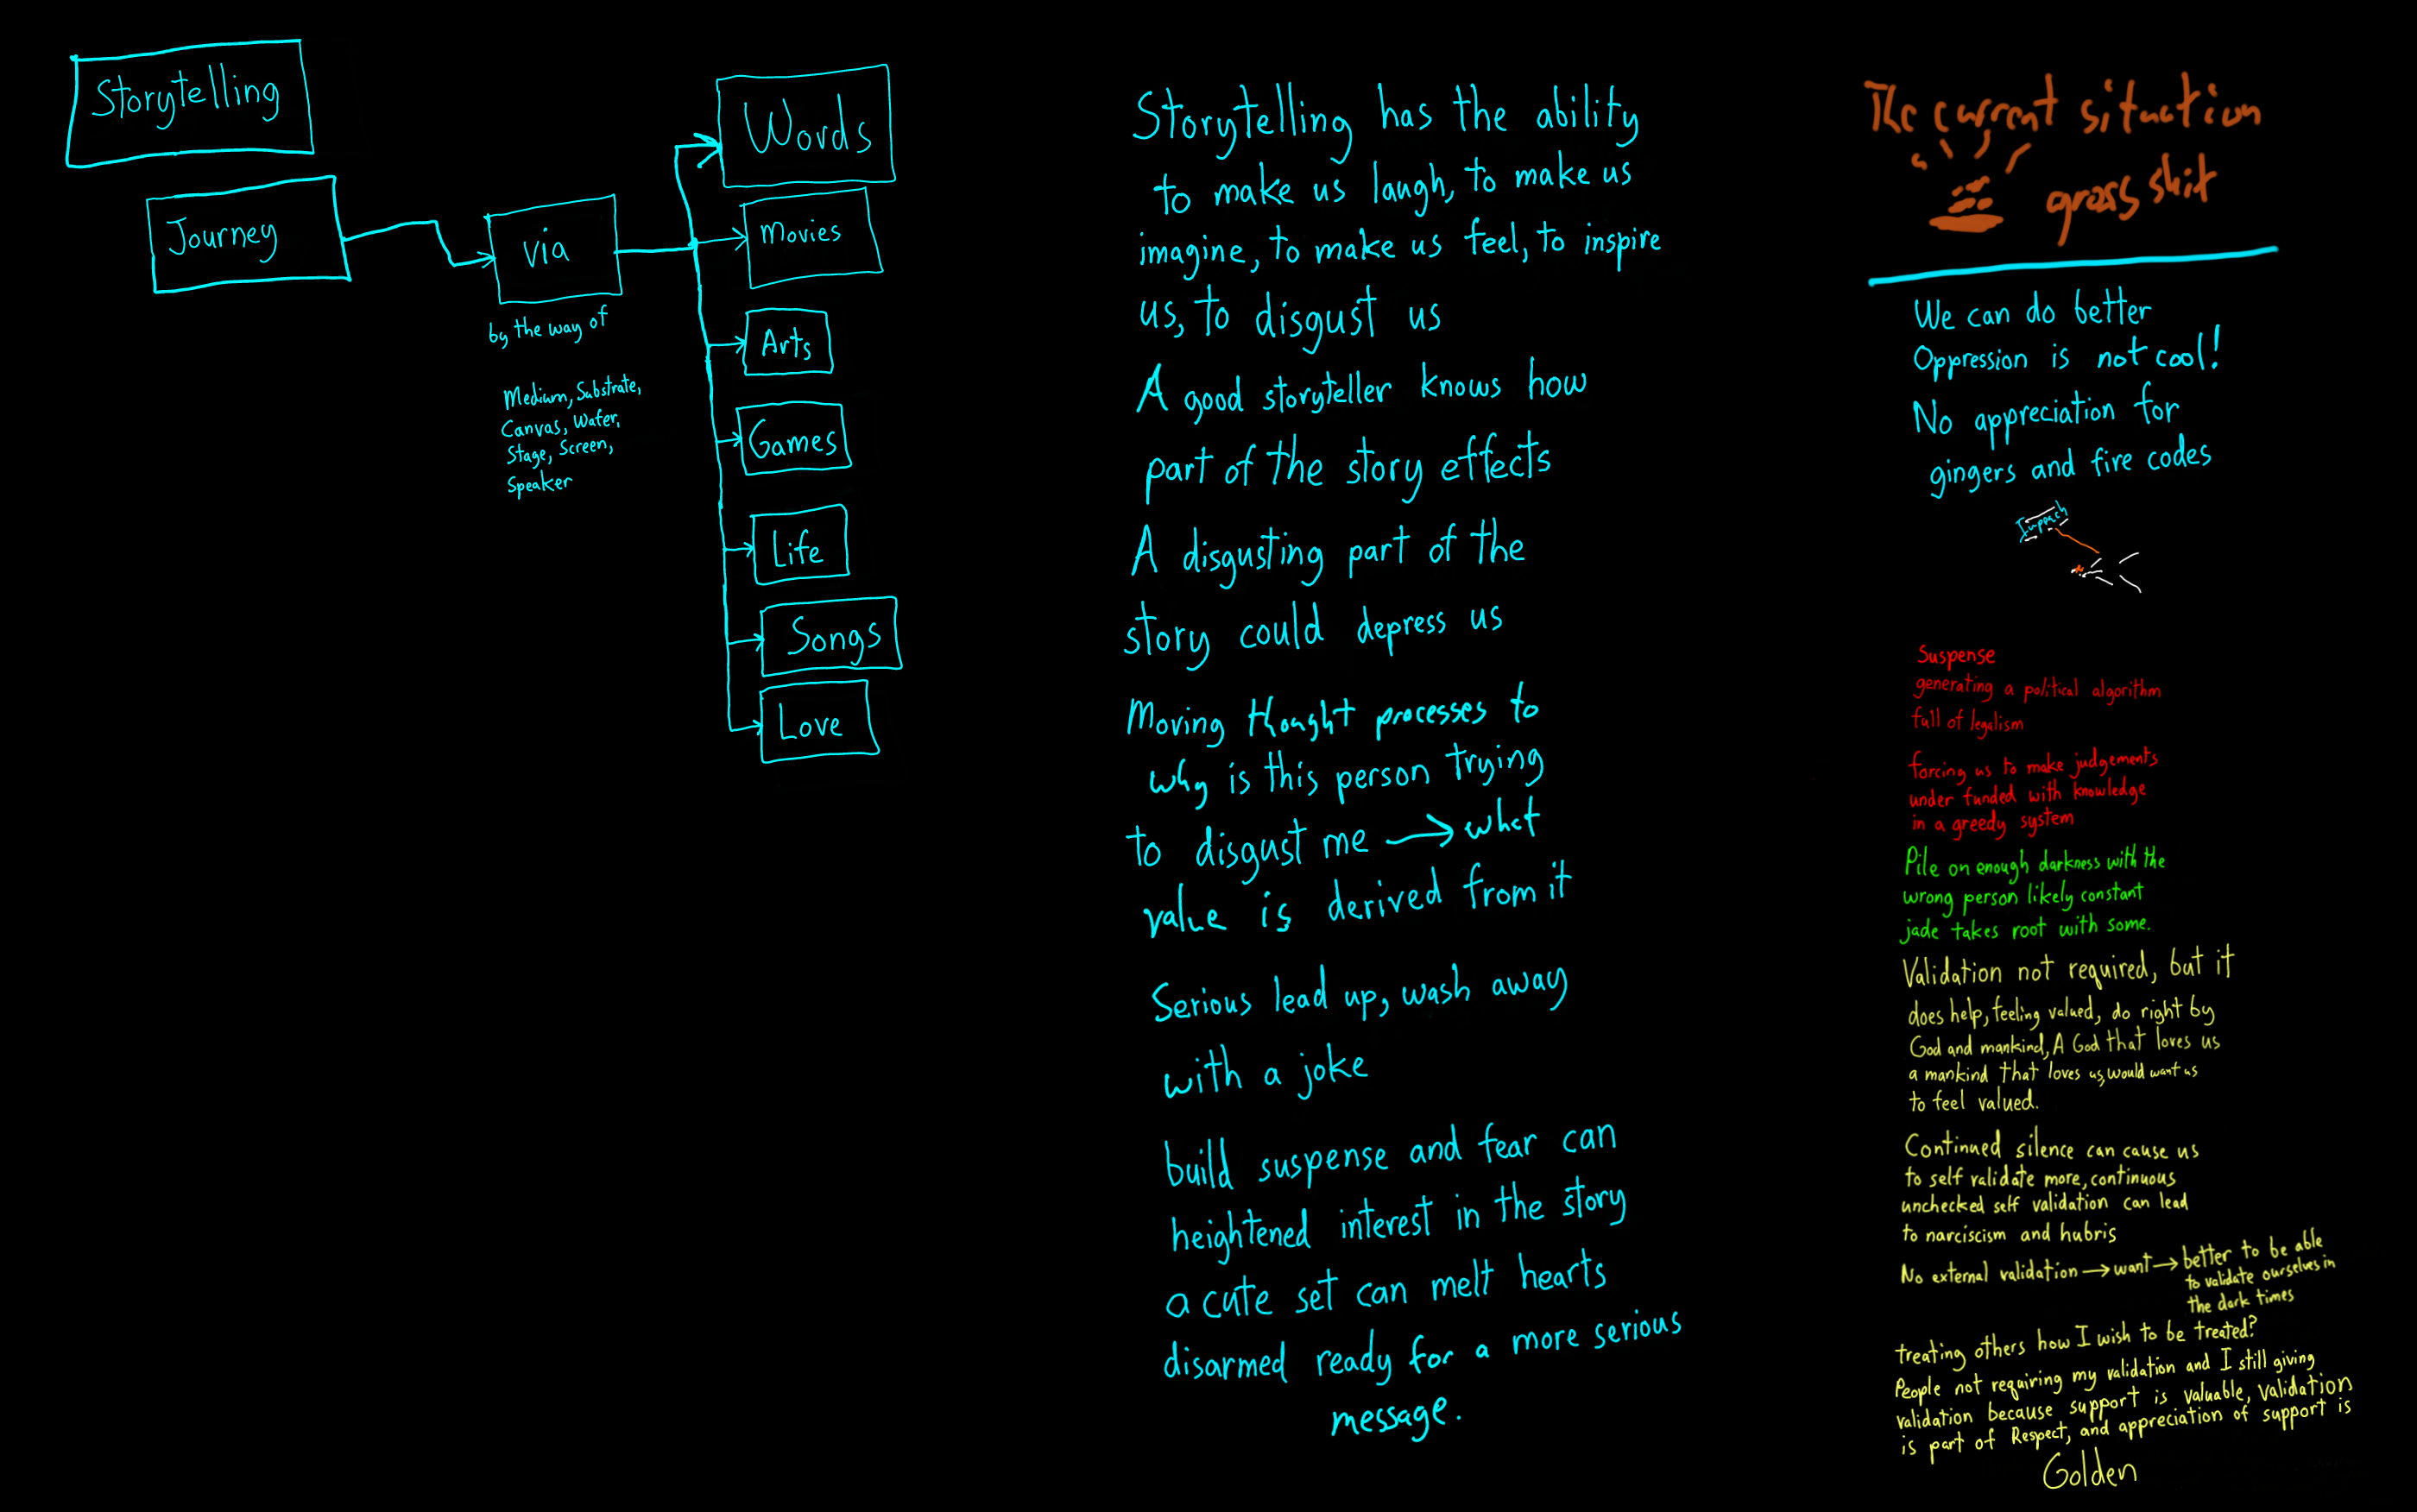 Storytelling
Journey
via
by the way of
Medium, Substrate,
Canvas, Water,
Stage, Screen,
Speaker
Words
Movies
Arts
Games
Life
Songs
Love
Storytelling has the ability
to make us laugh, to make us
imagine, to make us feel, to inspire
us, to disgust us
A good storyteller knows how
part of the story effects
A disgusting part of the
story could depress us
Moving thought processes to
why is this person trying
to disgust me → what
value is derived from it
Serious lead up, wash away
with a joke
build suspense and fear can
heightened interest in the story
a cute set can melt hearts
disarmed ready for a more serious
message.
The current situation
gross shit
We can do better
Oppression is not cool!
No appreciation for
gingers and fire codes
Suspense
generating a political algorithm
full of legalism
forcing us to make judgements
under funded with knowledge
in a greedy system
Pile on enough darkness with the
wrong person likely constant
jade takes root with some.
Validation not required, but it
does help, feeling valued, do right by
God and mankind, A God that loves us
a mankind that loves us, would want us
to feel valued.
Continued silence can cause us
to self validate more, continuous
unchecked self validation can lead
to narciscism and hubris
No external validation → want → better to be able
to validate ourselves in
the dark times
treating others how I wish to be treated?
People not requiring my validation and I still giving
validation because support is valuable, validation
is part of Respect, and appreciation of support is
Golden